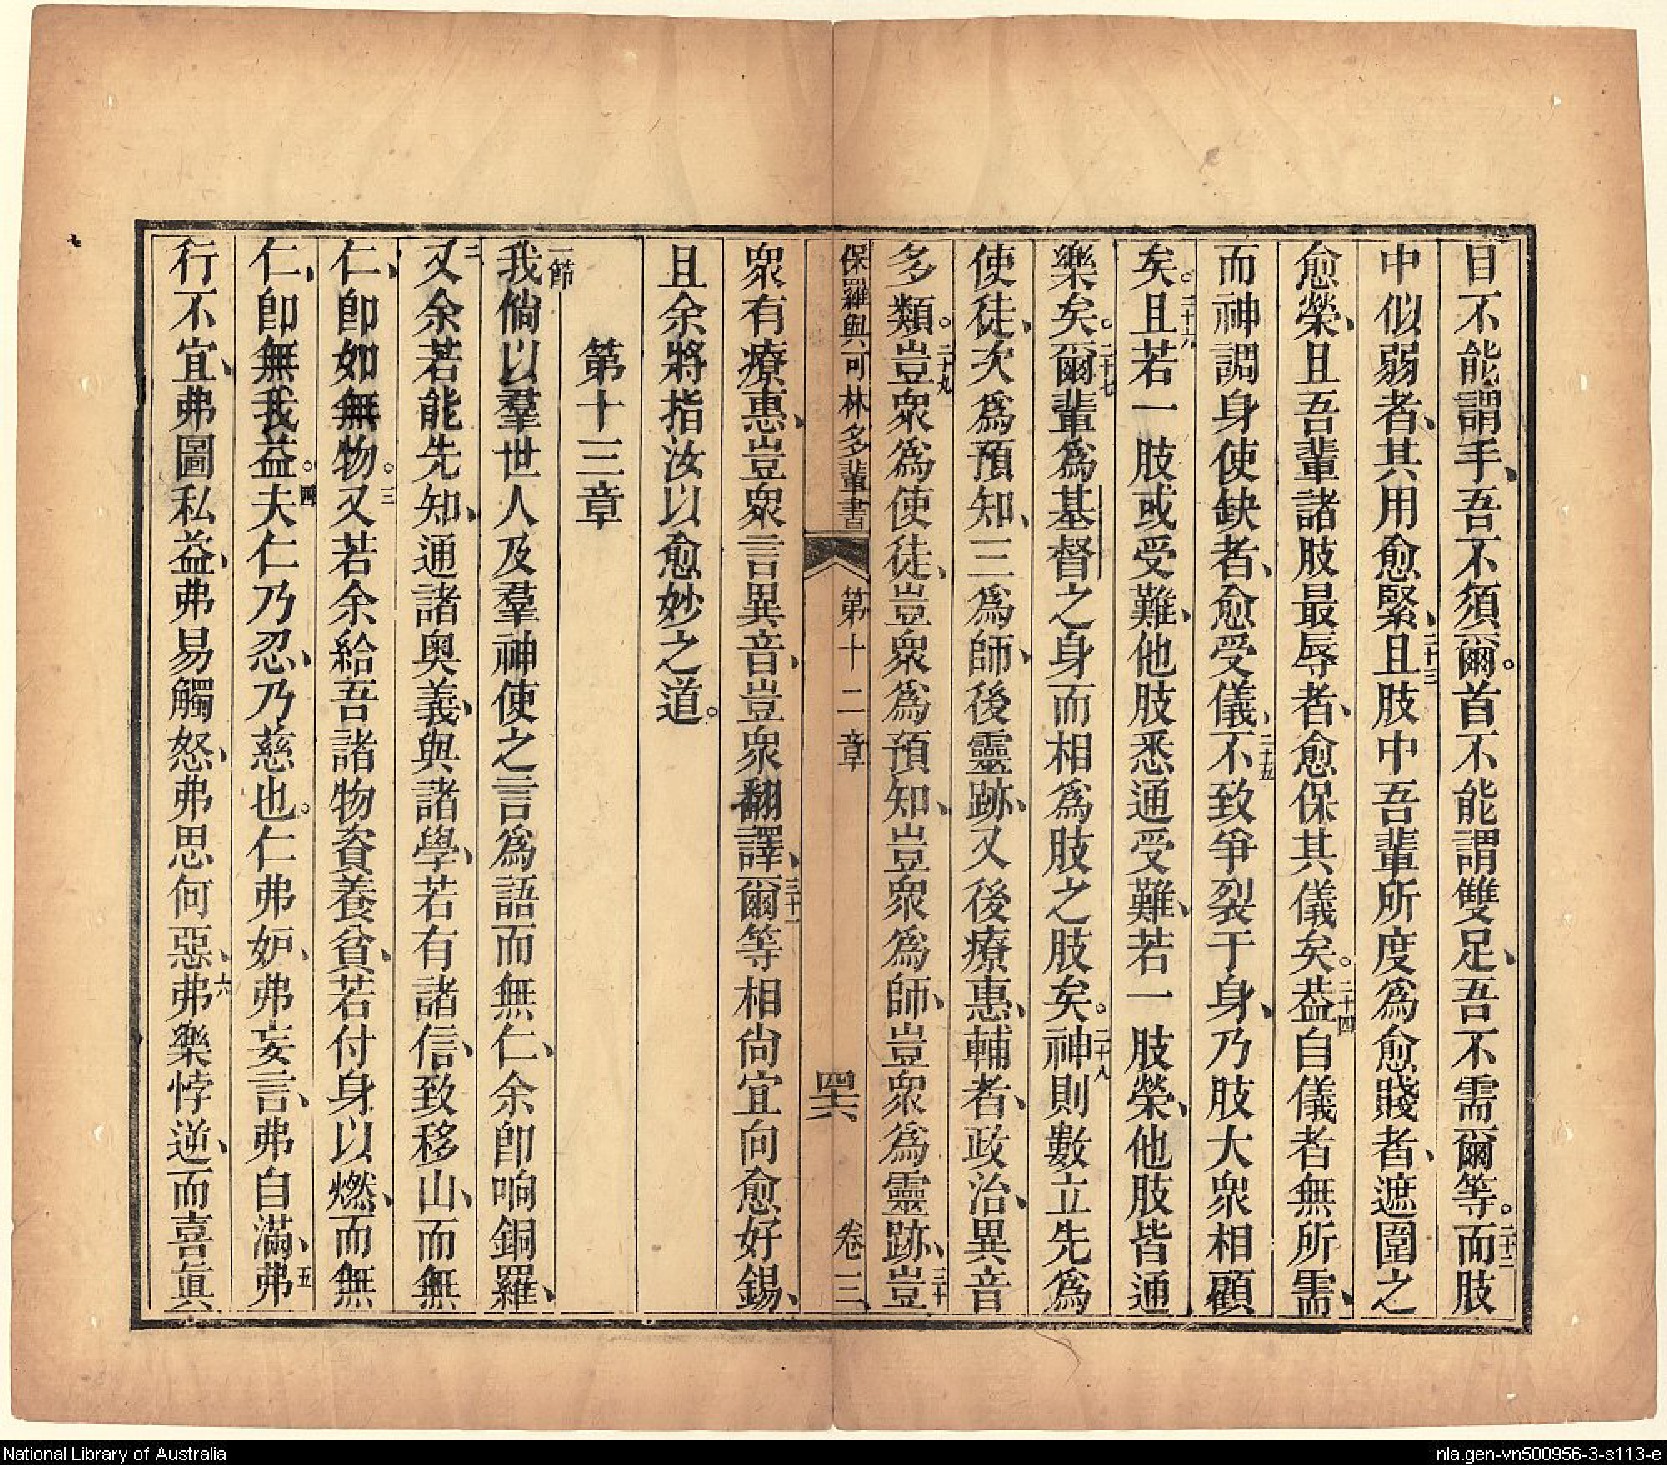 目不能謂手、吾不須爾。首不能謂雙足、吾不需爾等。二十二而肢
中似弱者、其用愈緊、二十三且肢中吾輩所度為愈賤者、遮圍之
愈榮、且吾輩諸肢最辱者、愈保其儀矣。二十四葢自儀者無所需、
而神調身使缺者、愈受儀、二十五不致爭裂于身、乃肢大衆相顧
矣。二十六且若一肢或受難、他肢悉通受難、若一肢榮、他肢皆通
樂矣。二十七爾輩為基督之身而相為肢之肢矣。二十八神則數立先為
使徒、次為預知、三為師、後靈跡、又後療惠、輔者、政治、異音
多類。二十九豈衆為使徒、豈衆為預知、豈衆為師、豈衆為靈跡、三十豈
保羅與可林多輩書 第十二章 四六 卷三
衆有療惠、豈衆言異音、豈衆翻譯、三十一爾等相尙宜向愈好錫、
且余將指汝以愈妙之道。
第十三章
一節我倘以羣世人及羣神使之言為語而無仁、余卽响銅羅、
二又余若能先知、通諸奧義、與諸學、若有諸信、致移山、而無
仁、卽如無物。三又若余給吾諸物資養貧、若付身以燃、而無
仁、卽無我益。四夫仁乃忍、乃慈也。仁弗妒、弗妄言、弗自滿、五弗
行不宜、弗圖私益、弗易觸怒、弗思何惡、六弗樂悖逆、而喜眞
National Library of Australia
nla.gen-vn500956-3-s113-e